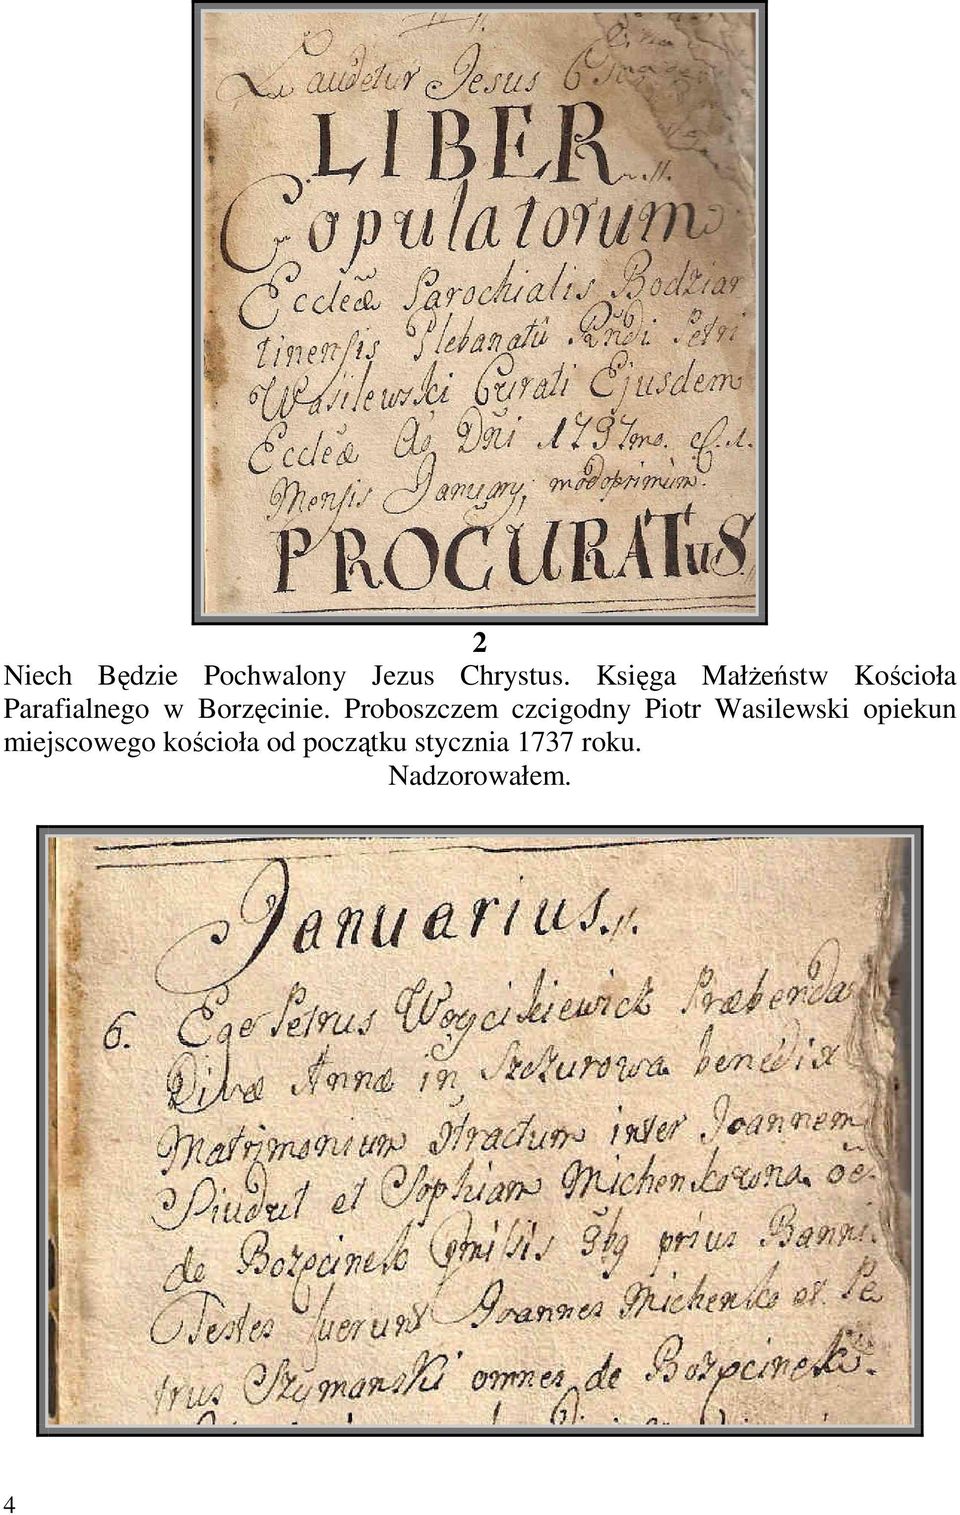 Laudetur Jesus
LIBER
Copulatorum
Eccleæ Parochialis Bodziar
tinensis Plebanatû Rñdi Petri
Wasilewski Curati Ejusdem
Eccleæ Ao Dñi 1737mo. d. 1.
Mensis January modoprimùm.
PROCURATuS
2
Niech Będzie Pochwalony Jezus Chrystus. Księga Małżeństw Kościoła
Parafialnego w Borzęcinie. Proboszczem czcigodny Piotr Wasilewski opiekun
miejscowego kościoła od początku stycznia 1737 roku.
Nadzorowałem.
Januarius.
6. Ege Petrus Woycikiewicz Præbenda
Divæ Annæ in Szczurowa benedixi
Matrimonium inter Joannem
Piudut et Sophiam Michenkowna
de Bozęcinek prius Banni.
Testes fuerunt Joannes Michenko et Pe
trus Szymanski omnes de Bozęcinek.
4